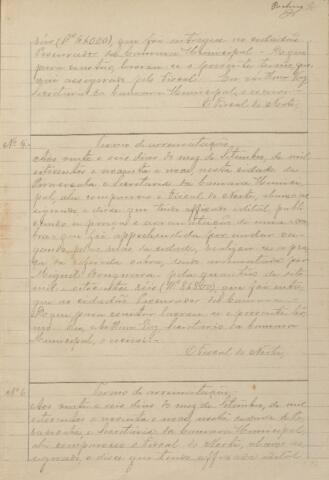 réis (Rs 6$000), que foi entregue ao cidadão
Procurador da Camara Municipal. Do que
para constar, lavrou-se o presente termo que
vae assignado pelo Fiscal. Eu, Arthur Vaz
secretario da Camara Municipal, o escrevi.
O Fiscal do Norte,
Nº 5
Termo de arrematação.
Aos vinte e seis dias do mez de Setembro, de mil
oitocentos e noventa e nove, nesta cidade de
e Secretaria da Camara Munici-
pal, ahi compareceu o Fiscal do Norte, abaixo as-
signado e disse que tendo affixado edital publi-
cando a praça e arrematação de uma ca-
bra que foi apprehendida por andar va-
gando pelas ruas da cidade, realizou-se a praça
da referida cabra, sendo arrematada por
Miguel pela quantia de sete
mil e oitocentos réis que foi entre-
gue ao cidadão Procurador da Camara.
Do que para constar lavrou-se o presente ter-
mo. Eu, Arthur Vaz, Secretario da Camara
Municipal, o escrevi.
O Fiscal do Norte,
Nº 6
Termo de arrematação.
Aos vinte e seis dias do mez de Setembro, de mil
oitocentos e noventa e nove, nesta cidade de
e Secretaria da Camara Municipal,
ahi compareceu o Fiscal do Norte, abaixo as-
signado, e disse que tendo affixado edital